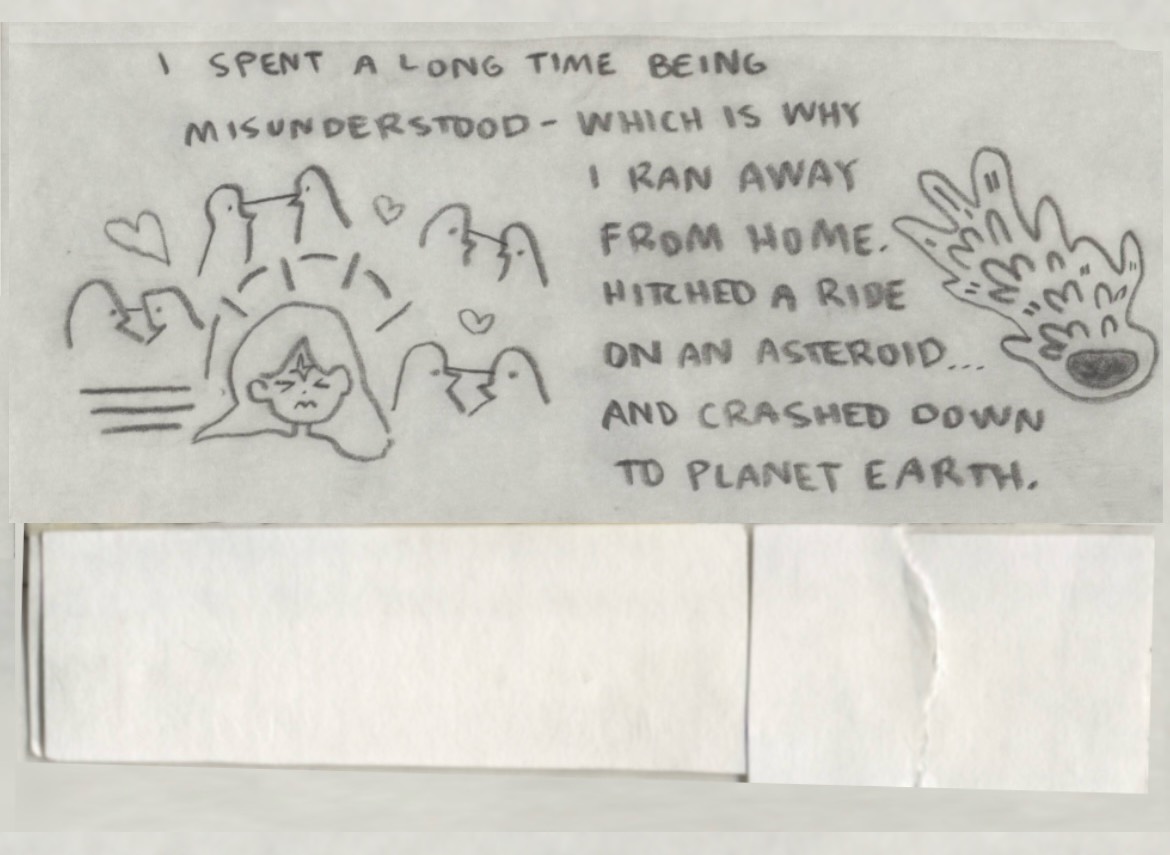 I SPENT A LONG TIME BEING
MISUNDERSTOOD - WHICH IS WHY
I RAN AWAY
FROM HOME.
HITCHED A RIDE
ON AN ASTEROID...
AND CRASHED DOWN
TO PLANET EARTH.